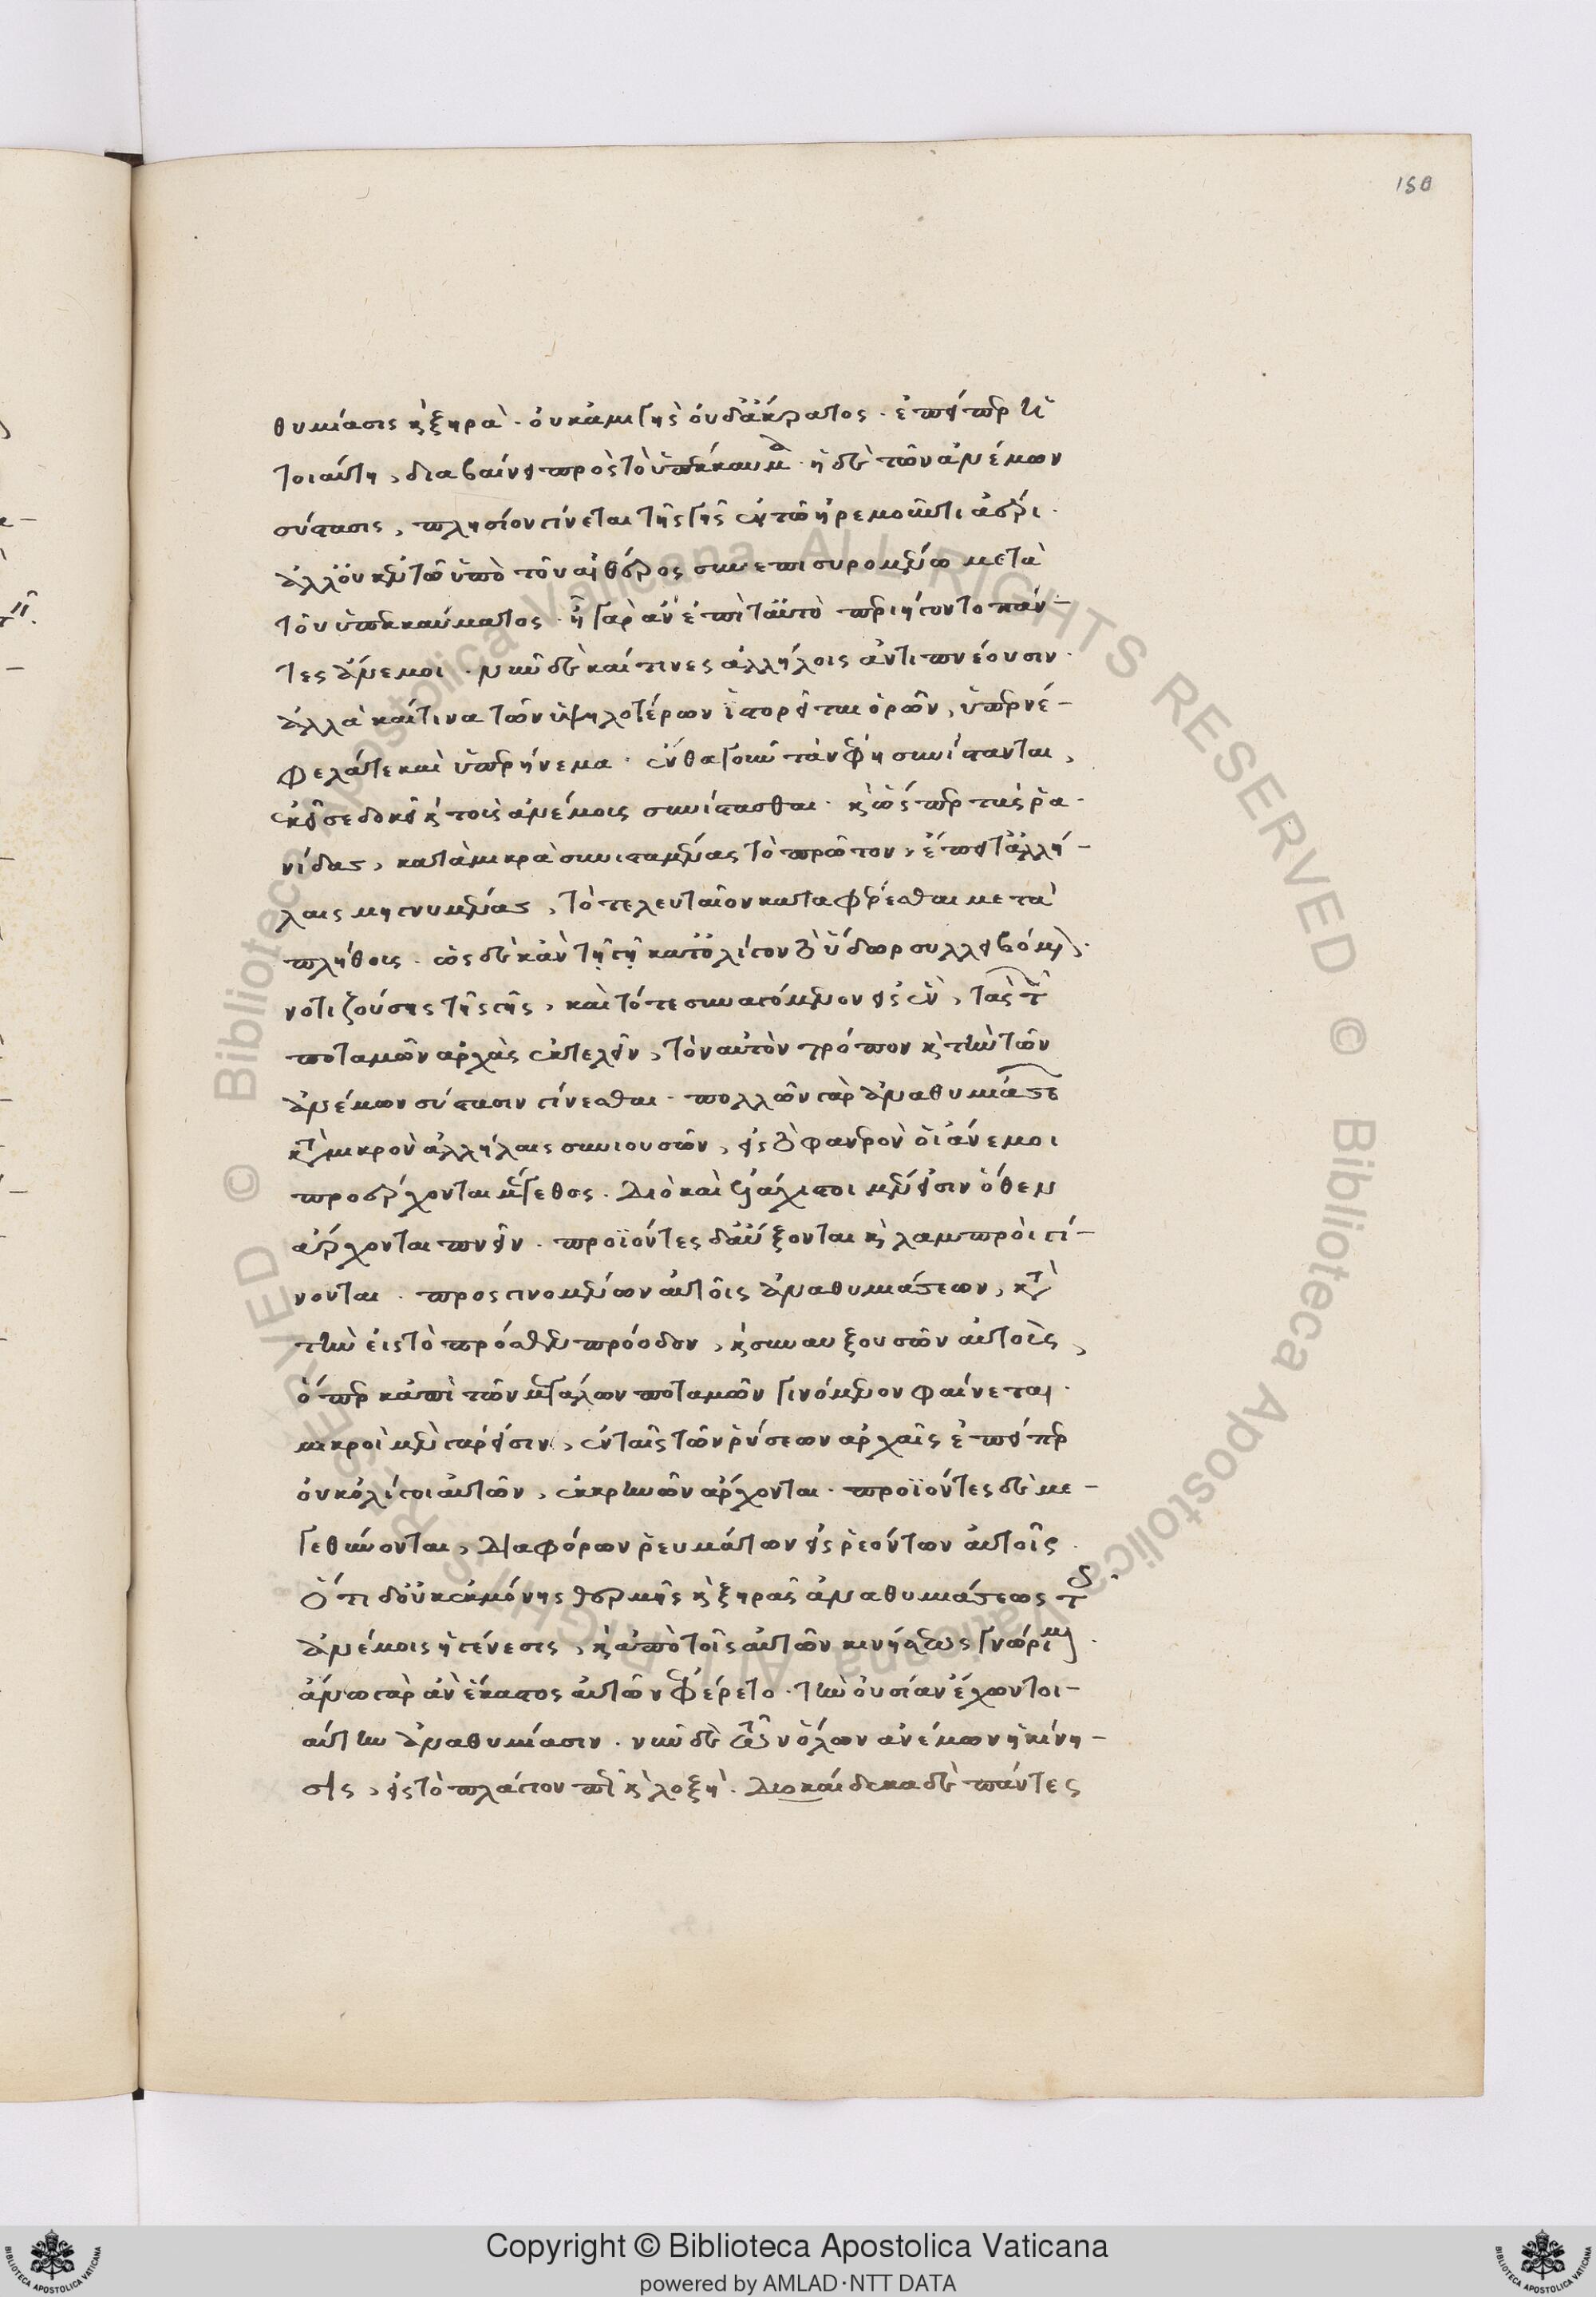 150
θυμίασις κ̀ ξηρὰ · οὐκ ἀμιγὴς οὐδ' ἄκρατος · ἐπείπερ ἡ
τοιαύτη, διαβαίνει πρὸς τὸ ὑπέκκαυμα · ἡ δὲ τῶν ἀνέμων
σύστασις, πλησίον γίνεται τῆς γῆς ἐν τῷ ἠρεμοῦντι ἀέρι ·
ἀλλ' οὐκ ἐν τῷ ὑπὸ τοῦ αἰθέρος συνεπισυρομένῳ μετὰ
τοῦ ὑπεκκαύματος · ἦ γὰρ ἂν ἐπὶ ταὐτὸ περιήγοντο πάν-
τες ἄνεμοι · νῦν δὲ καί τινες ἀλλήλοις ἀντιπνέουσιν ·
ἀλλὰ καί τινα τῶν ὑψηλοτέρων ἱστορεῖται ὀρῶν, ὑπερνέ-
φελά τε καὶ ὑπερήνεμα · ἔνθα γοῦν τὰ νέφη συνίστανται,
ἐκεῖσε δοκεῖ κ̀ τοὺς ἀνέμους συνίστασθαι · κ̀ ὥσπερ τὰς ῥα-
νίδας, κατὰ μικρὰ συνισταμένας τὸ πρῶτον, ἔπειτ' ἀλλή-
λαις μιγνυμένας, τὸ τελευταῖον καταφέρεσθαι μετὰ
πλήθους · ὡς δὲ κἀν τῇ γῇ κατ' ὀλίγον τὸ ὕδωρ συλλειβόμενον
νοτιζούσης τῆς γῆς, καὶ τότε συναγόμενον εἰς ἓν, τὰς τῶν
ποταμῶν ἀρχὰς ἐκτελεῖν, τὸν αὐτὸν τρόπον κ̀ τὴν τῶν
ἀνέμων σύστασιν γίνεσθαι · πολλῶν γὰρ ἀναθυμιάσεων
κατὰ μικρὸν ἀλλήλαις συνιουσῶν, εἰς τὸ φανερὸν οἱ ἄνεμοι
προσέρχονται μέγεθος · Διὸ καὶ ἐλάχιστοι μέν εἰσιν ὅθεν
ἄρχονται πνεῖν · προϊόντες δ' αὔξονται κ̀ λαμπροὶ γί-
νονται · προσγινομένων αὐτοῖς ἀναθυμιάσεων, κατὰ
τὴν εἰς τὸ πρόσθεν πρόοδον, κ̀ συναυξουσῶν αὐτοὺς,
ὅπερ κἀπὶ τῶν μεγάλων ποταμῶν γινόμενον φαίνεται ·
μικροὶ μὲν γάρ εἰσιν, ἐν ταῖς τῶν ῥύσεων ἀρχαῖς ἐπείπερ
οὐκ ὀλίγοι αὐτῶν, ἐκ κρηνῶν ἄρχονται · προϊόντες δὲ με-
γεθύνονται, διαφόρων ῥευμάτων εἰσρεόντων αὐτοῖς ·
Ὅτι δ' οὐκ ἐκ μόνης θερμῆς κ̀ ξηρᾶς ἀναθυμιάσεως τοῖς
ἀνέμοις ἡ γένεσις, κ̀ ἀπὸ τῆς αὐτῶν κινήσεως γνώριμον ·
ἄνω γὰρ ἂν ἕκαστος αὐτῶν ἐφέρετο · τὴν οὐσίαν ἔχων τοι-
αύτην ἀναθυμίασιν · νῦν δὲ τῶν ὅλων ἀνέμων ἡ κίνη-
σις, εἰς τὸ πλάγιον ἐστὶ κ̀ λοξή · Διὸ καὶ δεκαδὲ πάντες